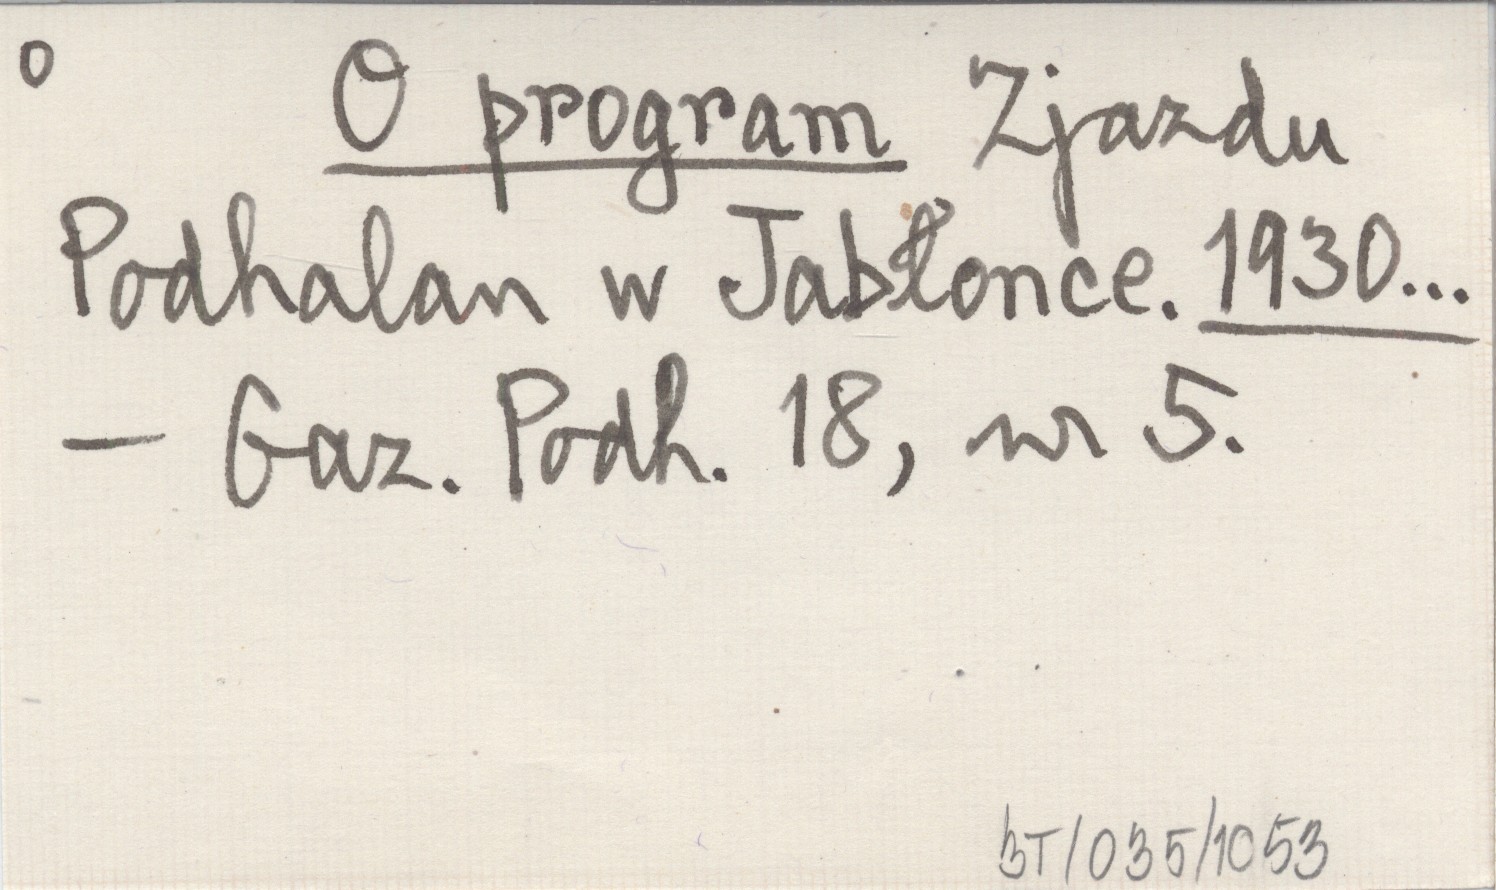 o O program Zjazdu
Podhalan w Jabłonce. 1930...
— Gaz. Podh. 18, nr 5.
BT/035/1053